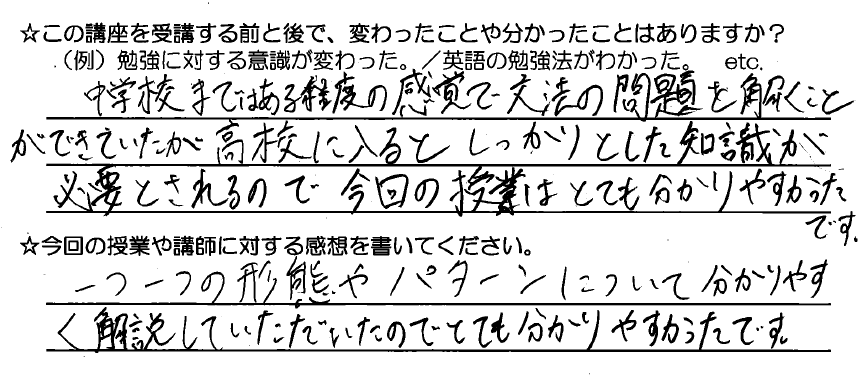 ☆この講座を受講する前と後で、変わったことや分かったことはありますか？
（例）勉強に対する意識が変わった。／英語の勉強法がわかった。　etc.
中学校まではある程度の感覚で文法の問題を解くこと
ができていたが高校に入るとしっかりとした知識が
必要とされるので今回の授業はとても分かりやすかった
です。
☆今回の授業や講師に対する感想を書いてください。
一つ一つの形態やパターンについて分かりやす
く解説していただいたのでとても分かりやすかったです。